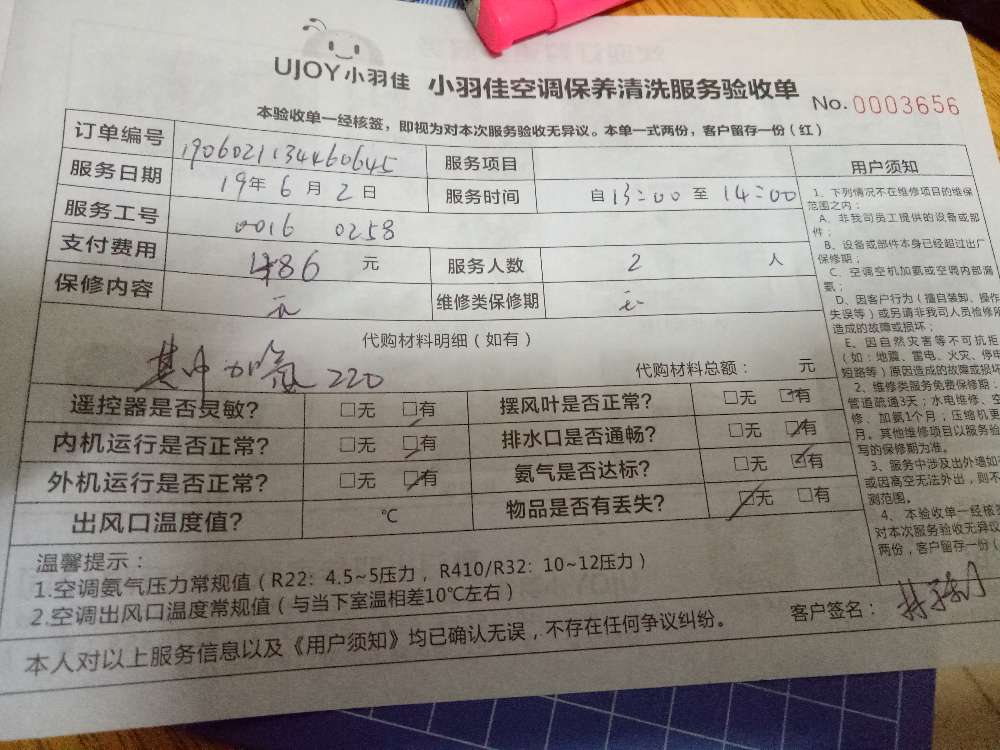 UJOY小羽佳 小羽佳空调保养清洗服务验收单 No.0003656
本验收单一经核签，即视为对本次服务验收无异议。本单一式两份，客户留存一份（红）
订单编号 1906021134460645 服务项目
服务日期 19年6月2日 服务时间 自13:00至14:00
服务工号 0016 0258
支付费用 486 元 服务人数 2 人
保修内容 无 维修类保修期 无
代购材料明细（如有）
其中加氨 220 代购材料总额： 元
遥控器是否灵敏？ □无 □有 摆风叶是否正常？ □无 □有
内机运行是否正常？ □无 □有 排水口是否通畅？ □无 □有
外机运行是否正常？ □无 □有 氨气是否达标？ □无 □有
出风口温度值？ ℃ 物品是否有丢失？ □无 □有
温馨提示：
1.空调氨气压力常规值（R22：4.5~5压力，R410/R32：10~12压力）
2.空调出风口温度常规值（与当下室温相差10℃左右）
客户签名：
本人对以上服务信息以及《用户须知》均已确认无误，不存在任何争议纠纷。
用户须知
1、下列情况不在维修项目的维保
范围之内：
A、非我司员工提供的设备或部
件；
B、设备或部件本身已经超过出厂
保修期；
C、空调空机加氨或空调内部漏
氨；
D、因客户行为（擅自装卸、操作
失误等）或另请非我司人员检修所
造成的故障或损坏；
E、因自然灾害等不可抗拒
（如：地震、雷电、火灾、停电
短路等）原因造成的故障或损坏
2、维修类服务免费保修期：
管道疏通3天；水电维修、空
修、加氨1个月；压缩机更
月。其他维修项目以服务验
写的保修期为准。
3、服务中涉及出外墙如
或因高空无法外出，则不
测范围。
4、本验收单一经核签
对本次服务验收无异议
两份，客户留存一份（